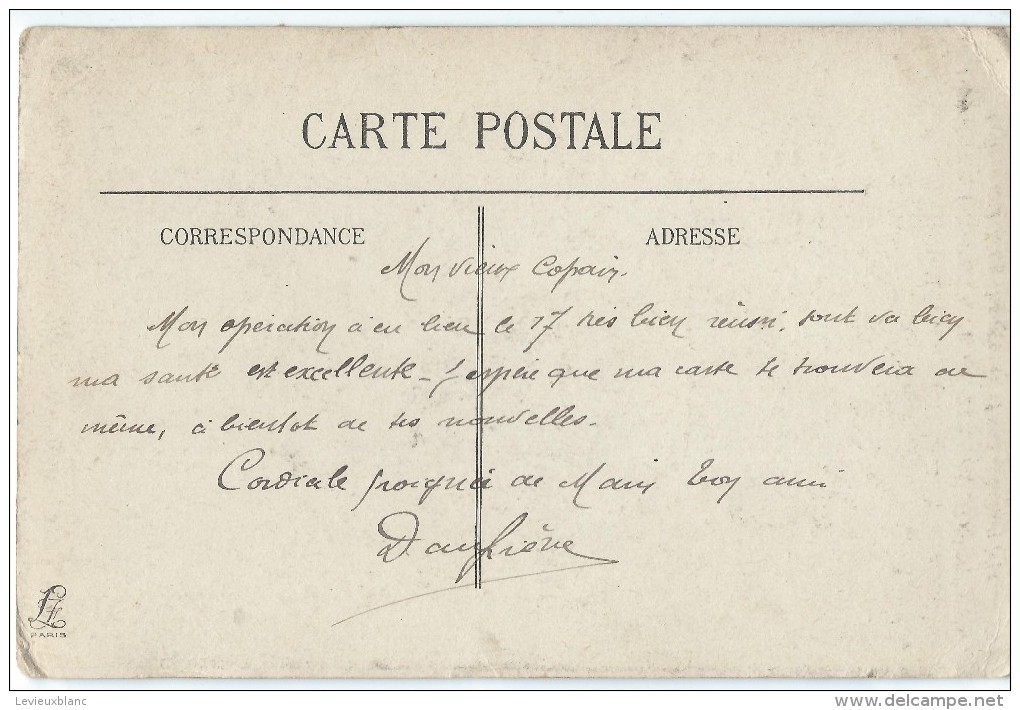 CARTE POSTALE
CORRESPONDANCE
ADRESSE
Mon vieux Copain.
Mon opération à eu lieu le 17 très bien réussi, tout va bien
ma santé est excellente – J'espère que ma carte te trouvera de
même, à bientot de tes nouvelles.
Cordiale poignée de Main ton ami
PARIS
Levieuxblanc
www.delcampe.net